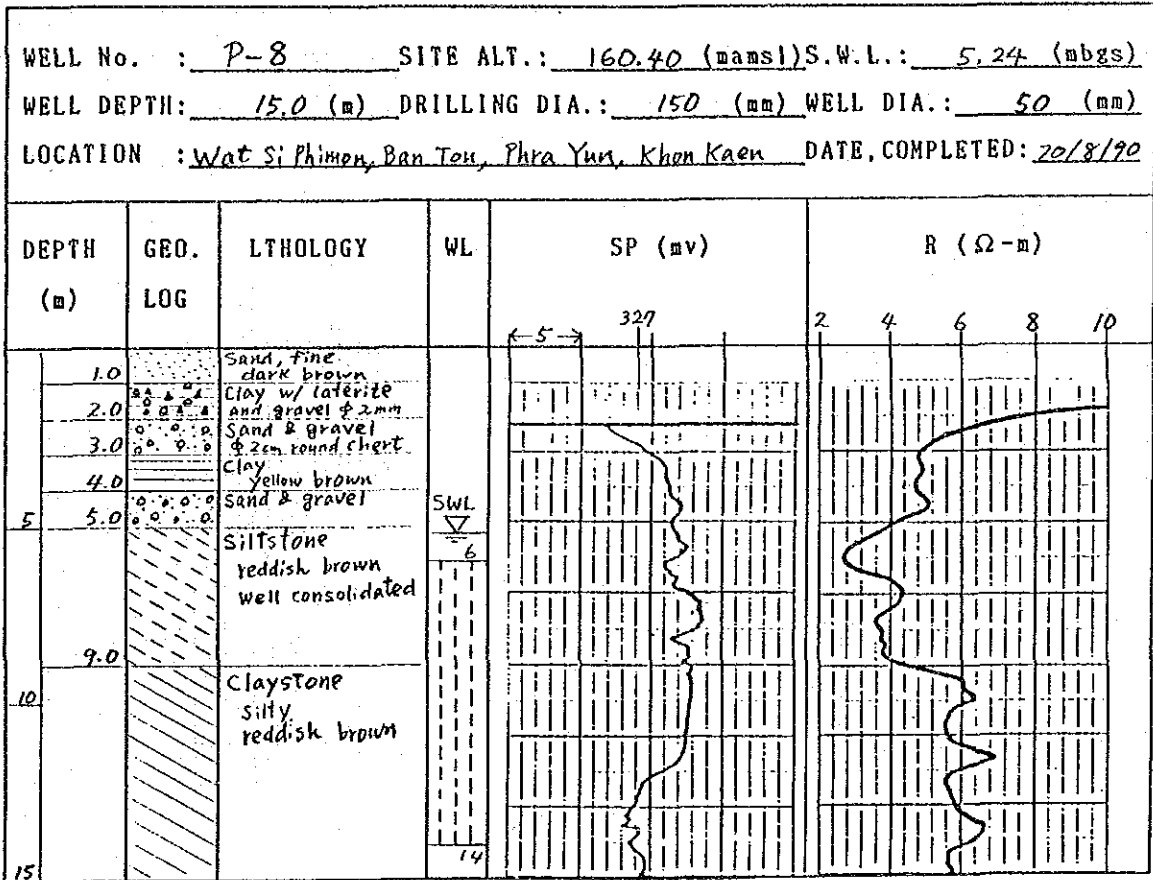 WELL No. : P-8 SITE ALT.: 160.40 (mamsl) S.W.L.: 5.24 (mbgs)
WELL DEPTH: 15.0 (m) DRILLING DIA.: 150 (mm) WELL DIA.: 50 (mm)
LOCATION : Wat Si Phimon, Ban Ton, Phra Yun, Khon Kaen DATE, COMPLETED: 20/8/90
DEPTH GEO. LTHOLOGY WL SP (mv) R (Ω-m)
(m) LOG
5 327 2 4 6 8 10
Sand, fine
1.0 dark brown
Clay w/ laterite
2.0 and gravel φ 2mm
Sand & gravel
3.0 φ 2cm round chert
Clay
4.0 yellow brown
Sand & gravel SWL
5 5.0
Siltstone 6
reddish brown
well consolidated
9.0
Claystone
10 silty
reddish brown
14
15